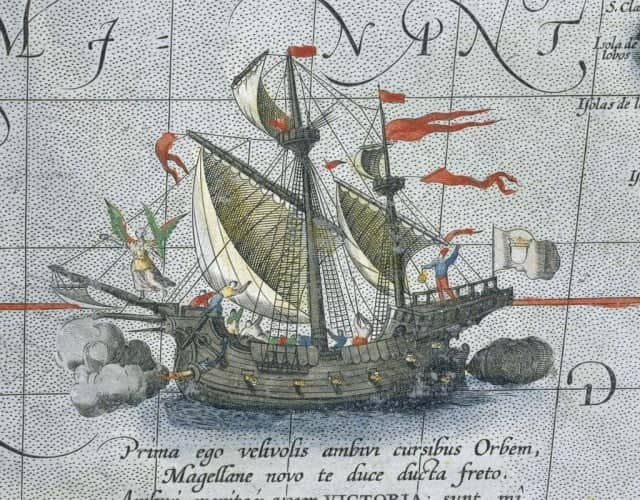 M I = N A N T,
S. Cla
Isola de lobos
Isolas de la
D
Prima ego velivolis ambivi cursibus Orbem,
Magellane novo te duce ducta freto.
VICTORIA, sunt mi